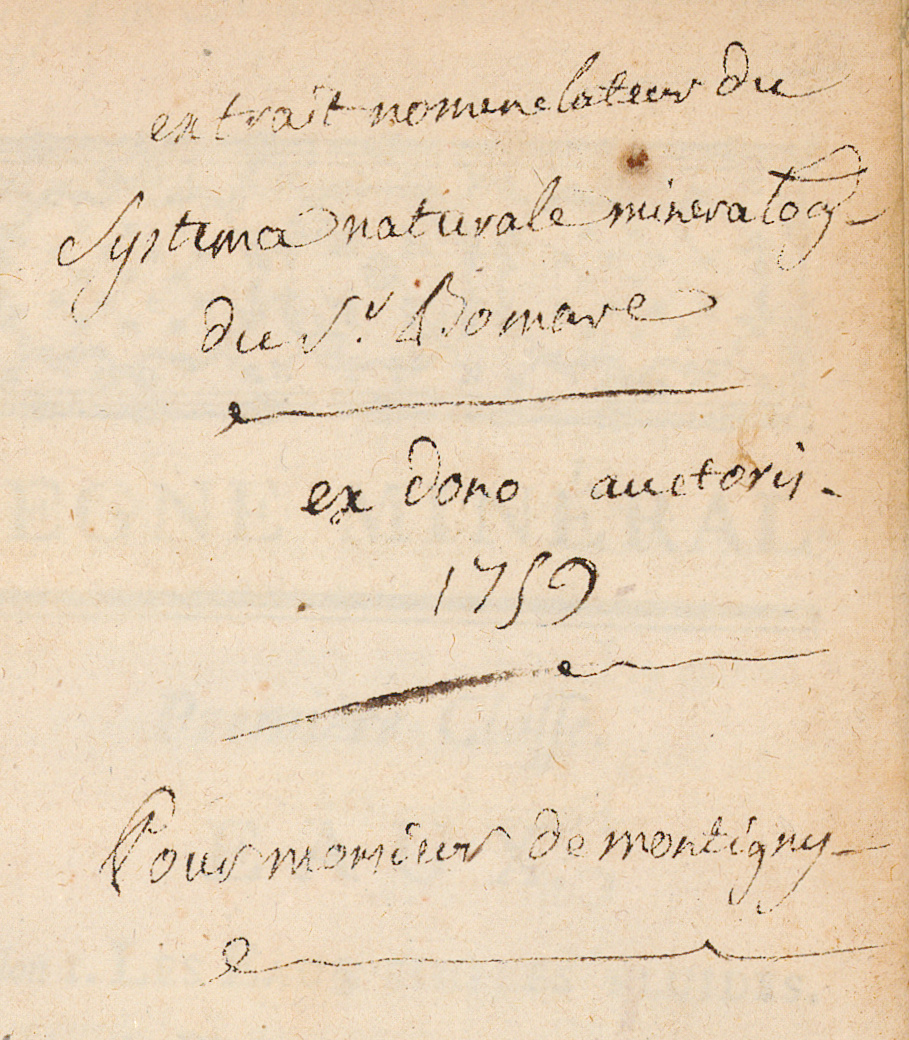 extrait nomenclateur du
Systema naturale mineralog
du Sr. Bomare
ex dono auctoris.
1759
Pour monsieur de montigny